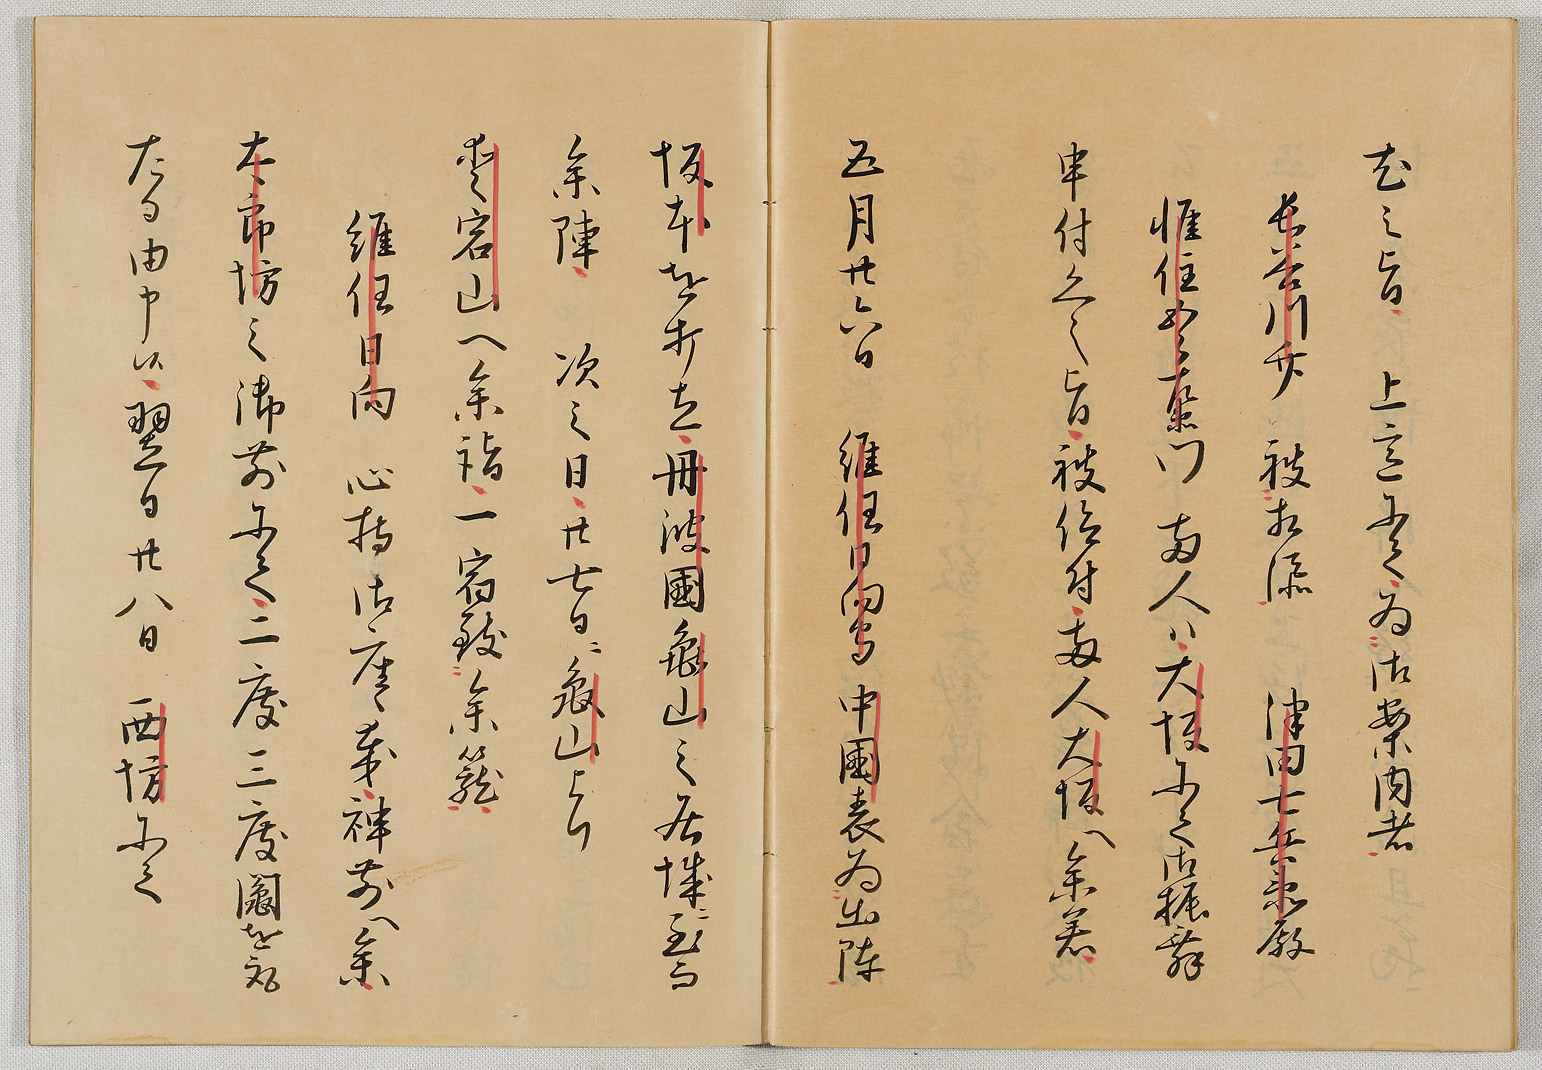 尤之旨 上意にて為御案内者
長谷川竹 被相添 津田七兵衛殿
惟住五郎左衛門 両人ハ大坂にて御振舞
申付候之旨被仰付両人大坂へ参着
五月廿六日 維任日向守中國表為出陣
坂本を打立丹波國亀山之居城ニ至而
参陣 次之日廿七日ニ亀山より
愛宕山へ参詣一宿致参籠
維任日向 心持御座候哉神前へ参
太郎坊之御前にて二度三度鬮を取
たる由申候翌日廿八日 西坊にて